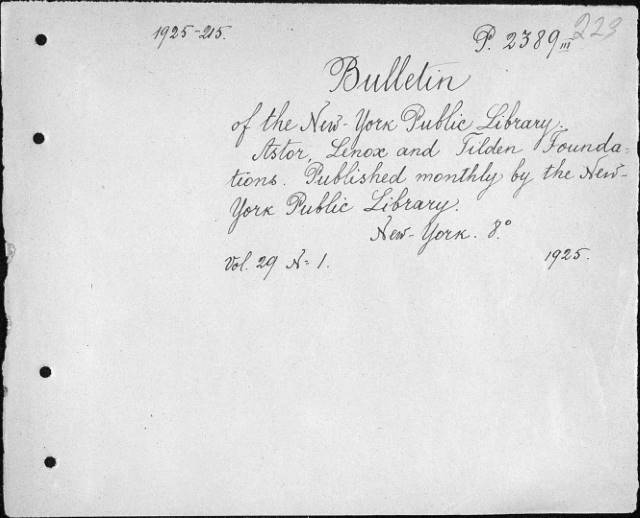 1925-215.
P. 2389 III
223
Bulletin
of the New-York Public Library.
Astor, Lenox and Tilden Founda-
tions. Published monthly by the New-
York Public Library.
New-York. 8°.
Vol. 29 N= 1.
1925.